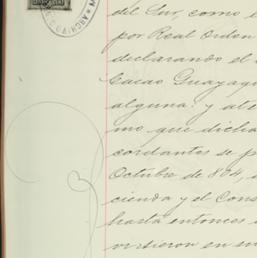 MARCHIVO
del Sur, como e
por Real Orden
declarando el
Cacao Guayaqu
alguna y até
mo que dicha
cordantes se p
Octubre de 1804, e
cienda y el Cons
hasta entonces
virtieron en su